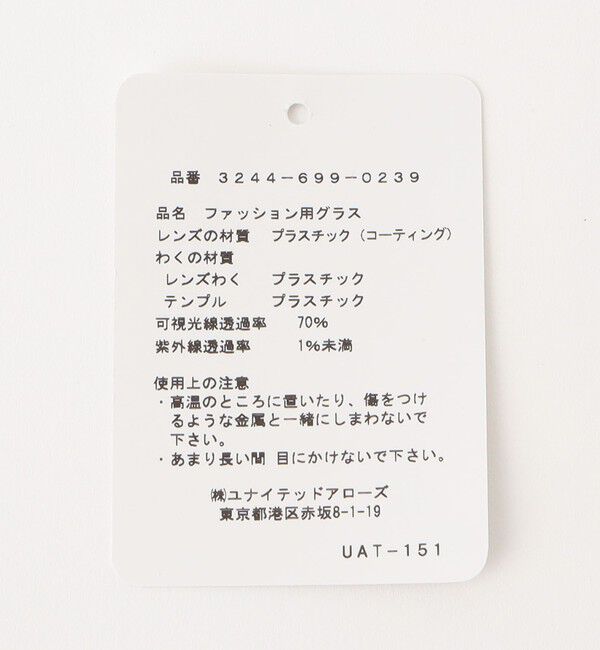 品番 3244-699-0239
品名 ファッション用グラス
レンズの材質 プラスチック（コーティング）
わくの材質
レンズわく プラスチック
テンプル プラスチック
可視光線透過率 70%
紫外線透過率 1%未満
使用上の注意
・高温のところに置いたり、傷をつけ
るような金属と一緒にしまわないで
下さい。
・あまり長い間 目にかけないで下さい。
㈱ユナイテッドアローズ
東京都港区赤坂8-1-19
UAT-151